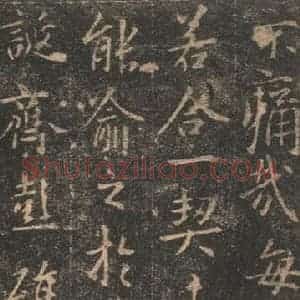 不痛哉每
若合一契
能喻之於
誕齊彭殤
Shufaziliao.com